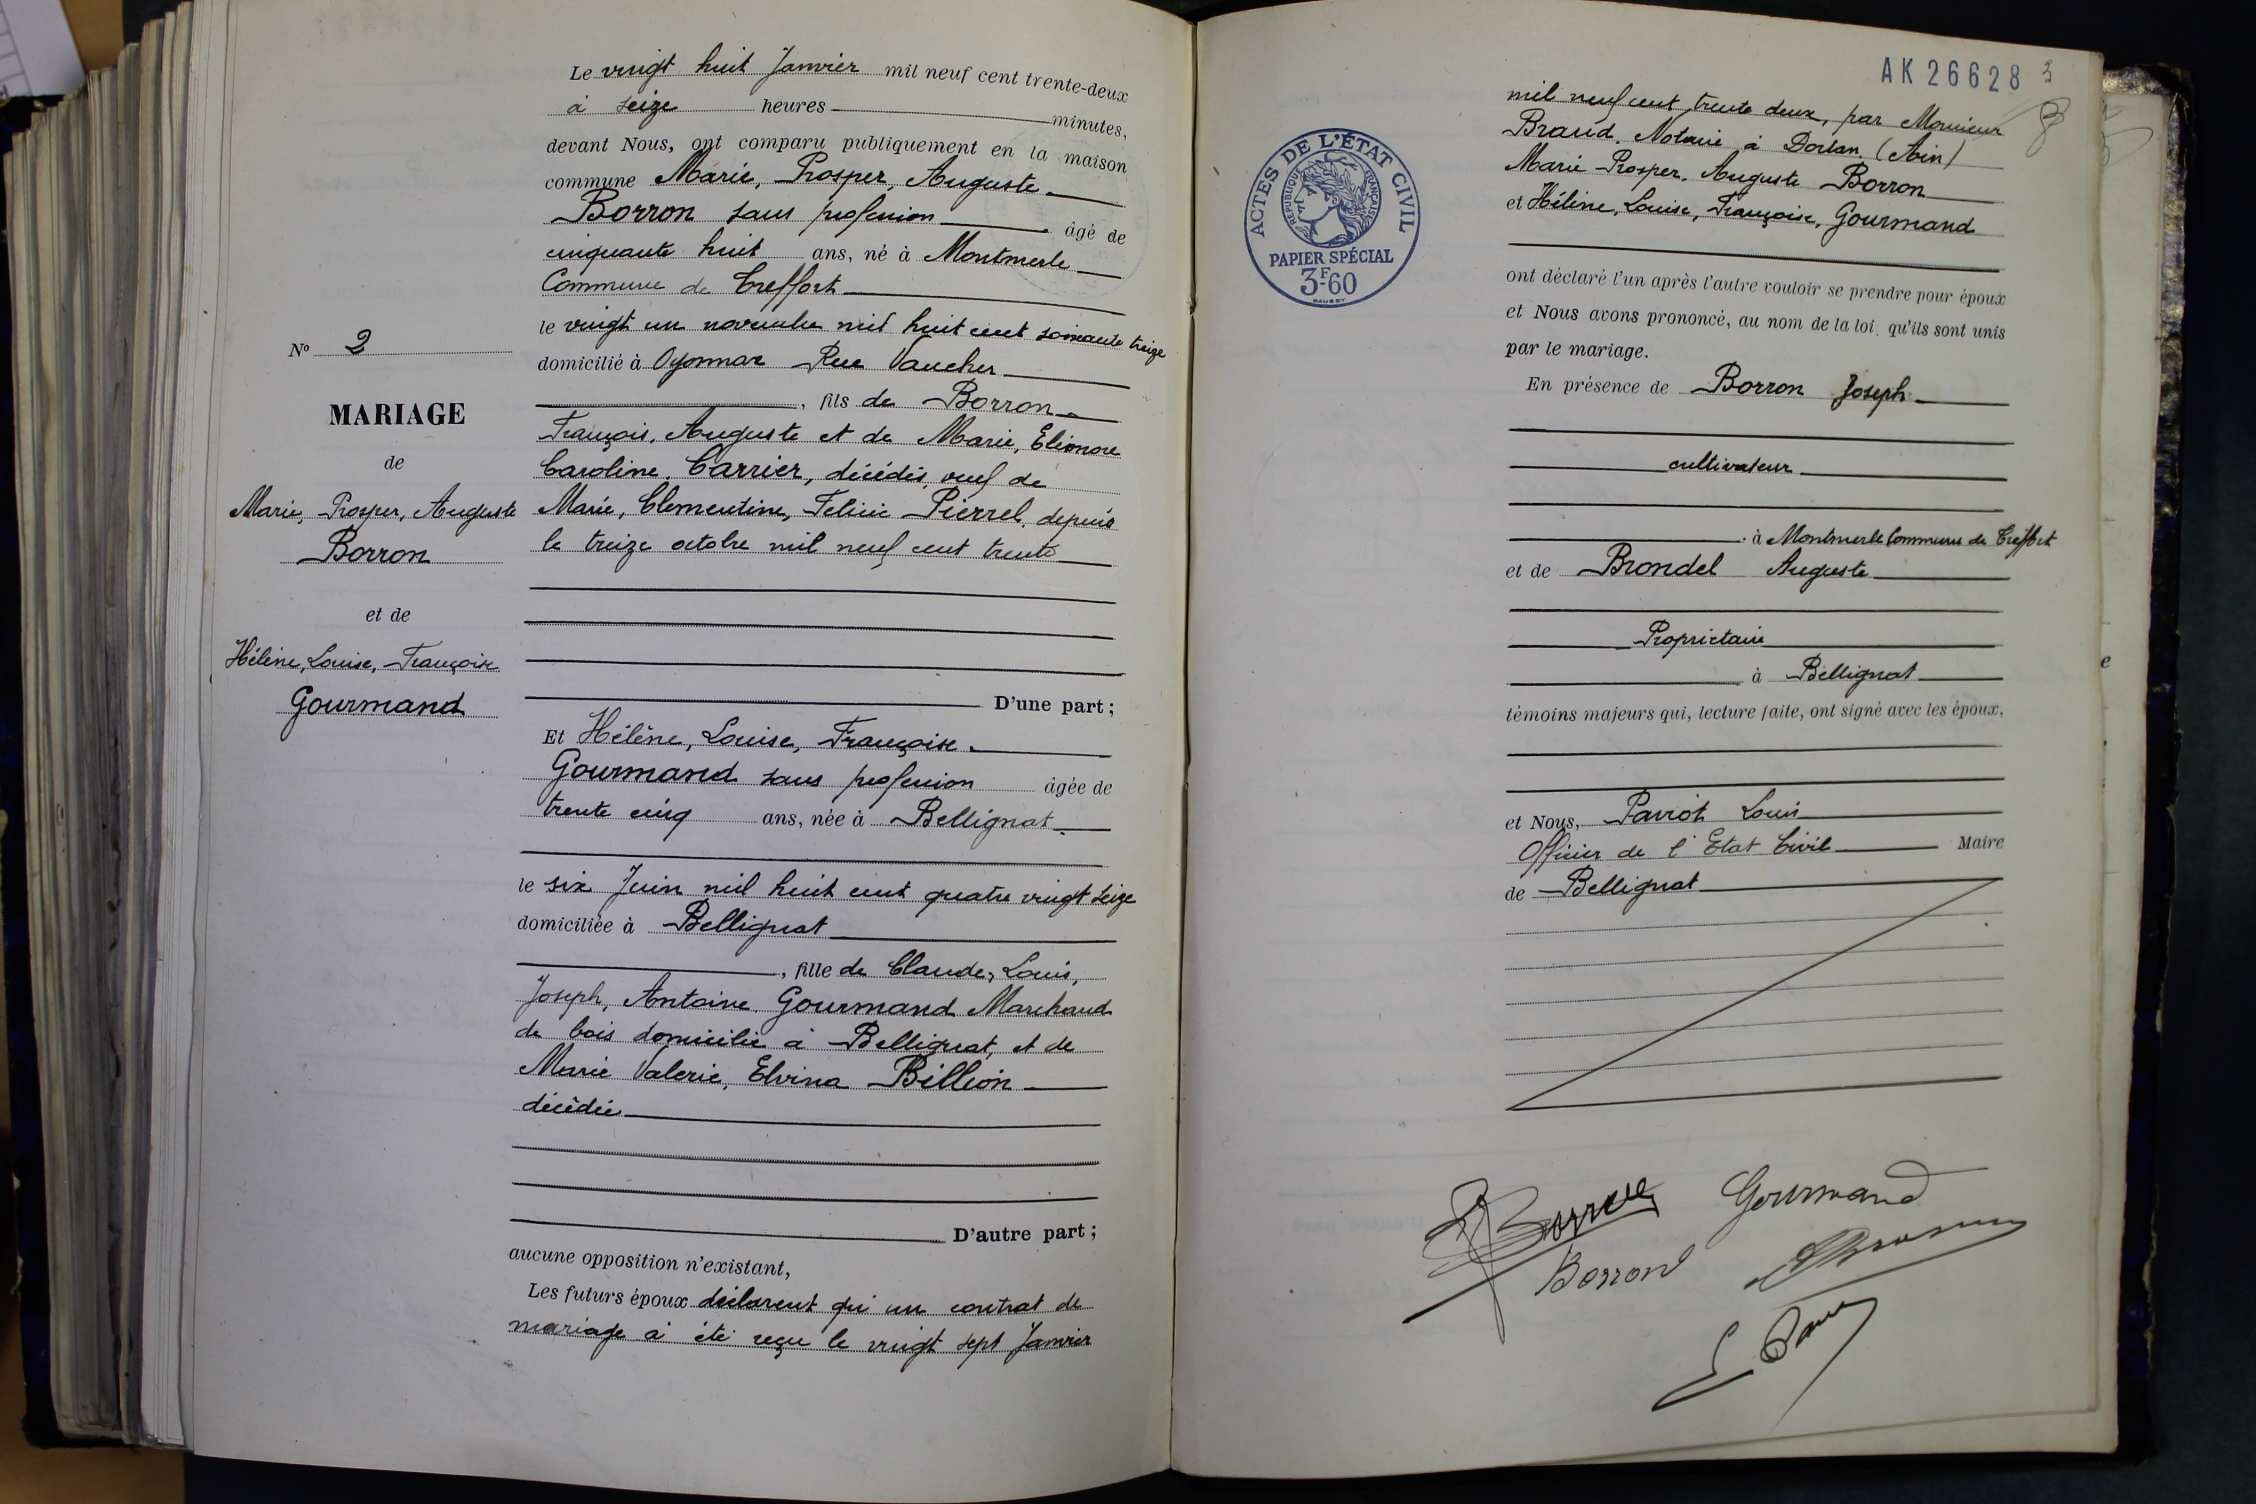 Le vingt huit Janvier mil neuf cent trente-deux
à seize heures minutes,
devant Nous, ont comparu publiquement en la maison
commune Marie, Prosper, Auguste
Borron sans profession âgé de
cinquante huit ans, né à Montmerle
Commune de Treffort
le vingt un novembre mil huit cent soixante treize
domicilié à Oyonnax Rue Vaucher
, fils de Borron
François, Auguste et de Marie, Eléonore
Caroline, Carrier, décédés, veuf de
Marie, Clementine, Felicie Pierrel, depuis
le treize octobre mil neuf cent trente
D'une part;
Et Hélène, Louise, Françoise
Gourmand sans profession âgée de
trente cinq ans, née à Bellignat
le six Juin mil huit cent quatre vingt seize
domiciliée à Bellignat
, fille de Claude, Louis,
Joseph, Antoine Gourmand Marchand
de bois domicilié à Bellignat, et de
Marie Valerie, Elvina Billion
décédée
D'autre part;
aucune opposition n'existant,
Les futurs époux déclarent qu'un contrat de
mariage a été reçu le vingt sept Janvier
N° 2
MARIAGE
de
Marie, Prosper, Auguste
Borron
et de
Hélène, Louise, Françoise
Gourmand
AK 26628 3
ACTES DE L'ÉTAT CIVIL
RÉPUBLIQUE FRANÇAISE
PAPIER SPÉCIAL
3F-60
mil neuf cent trente deux, par Monsieur
Braud, Notaire à Dortan (Ain)
Marie Prosper, Auguste Borron
et Hélène, Louise, Françoise, Gourmand
ont déclaré l'un après l'autre vouloir se prendre pour époux
et Nous avons prononcé, au nom de la loi, qu'ils sont unis
par le mariage.
En présence de Borron Joseph
cultivateur
à Montmerle Commune de Treffort
et de Brondel Auguste
Proprietaire
à Bellignat
témoins majeurs qui, lecture faite, ont signé avec les époux,
et Nous, Paviot Louis
Officier de l'Etat Civil Maire
de Bellignat
Borron Gourmand
Borron